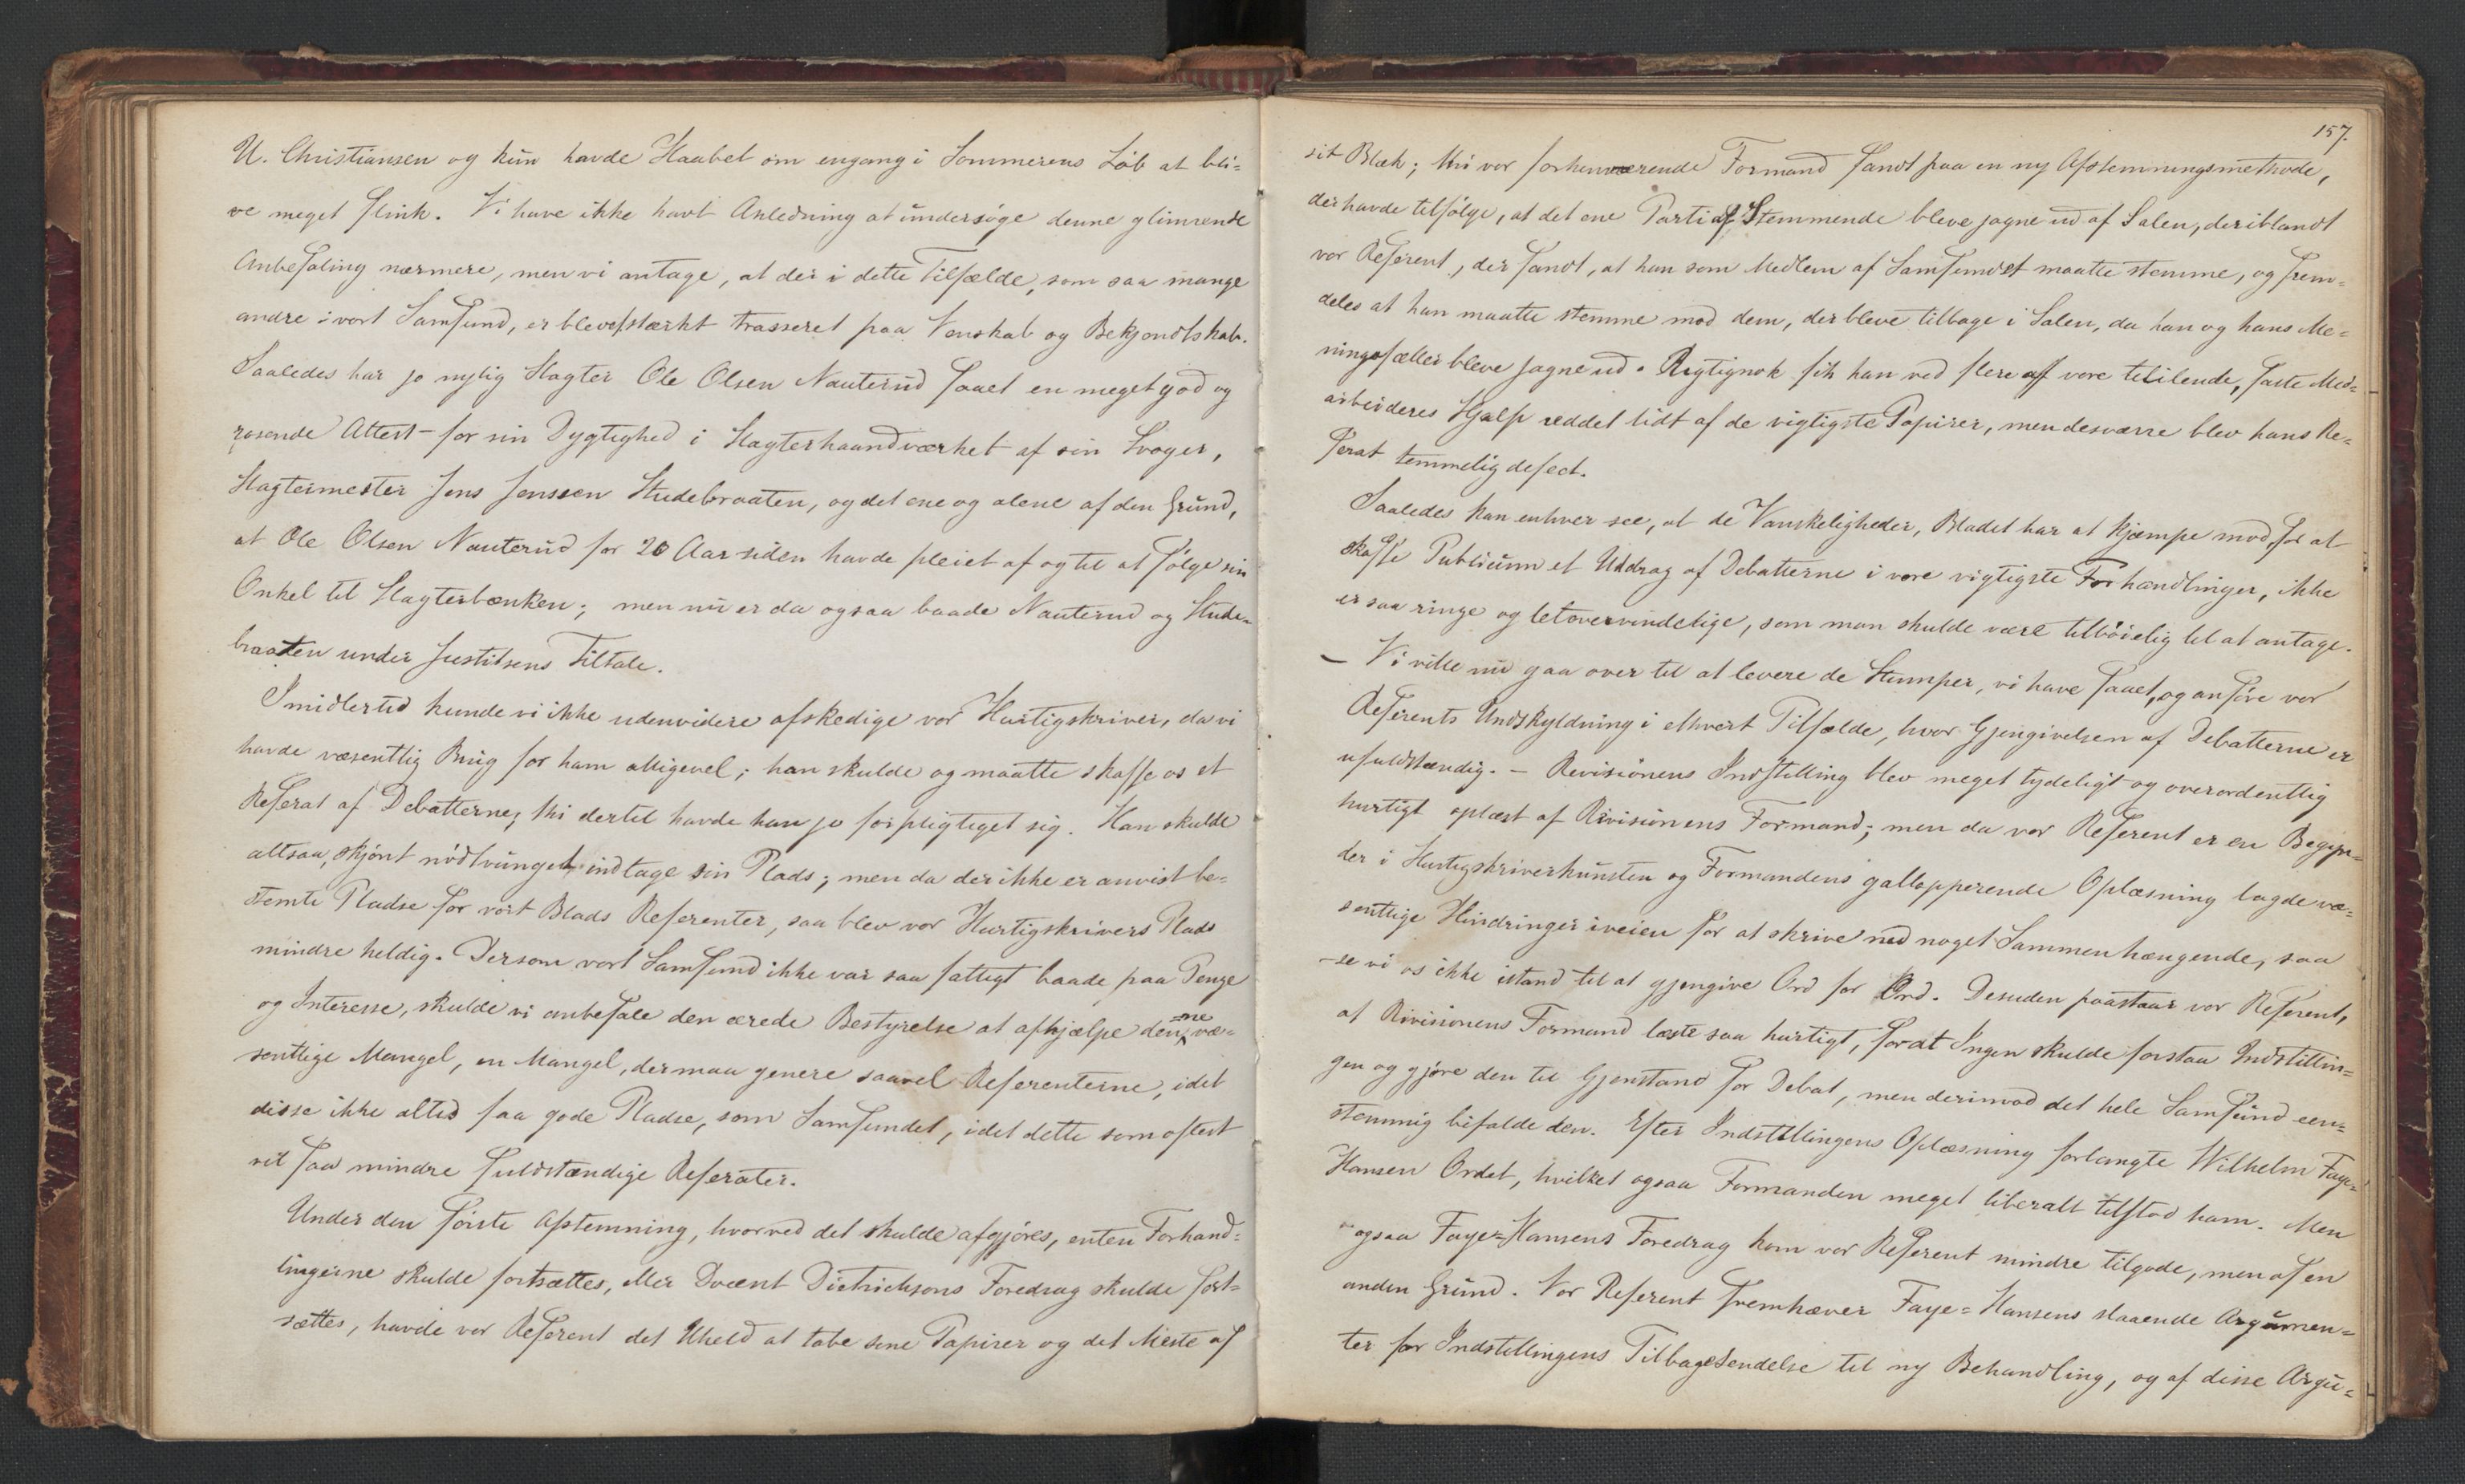 U. Christiansen og kun havde Haabet om engang i Sommerens Löb at bli=
ve meget flink. Vi have ikke havt Anledning at undersöge denne glimrende
Anbefaling nærmere, men vi antage, at der i dette Tilfælde, som saa mange
andre i vort Samfund, er bleven stærkt trasseret paa Venskab og Bekjendtskab.
Saaledes har jo nylig Slagter Ole Olsen Nauterud faaet en meget god og
rosende Attest for sin Dygtighed i Slagterhaandværket af sin Svoger,
Slagtermester Jens Jenssen Studebraaten, og det ene og alene af den Grund,
at Ole Olsen Nauterud for 20 Aar siden havde pleiet af og til at fölge sin
Onkel til Slagterbænken; men nu er da ogsaa baade Nauterud og Stude=
braaten under Justitsens Tiltale.
Imidlertid kunde vi ikke udenvidere afskedige vor Hurtigskriver, da vi
havde væsentlig Brug for ham alligevel; han skulde og maatte skaffe os et
Referat af Debatterne, thi dertil havde han jo forpligtiget sig. Han skulde
altsaa, skjönt nödtvunget, indtage sin Plads; men da der ikke er anvist be=
stemte Pladse for vort Blads Referenter, saa blev vor Hurtigskrivers Plads
mindre heldig. Dersom vort Samfund ikke var saa fattigt baade paa Penge
og Interesse, skulde vi anbefale den ærede Bestyrelse at afhjælpe den=ne væ=
sentlige Mangel, en Mangel, der maa genere saavel Referenterne, idet
disse ikke altid faa gode Pladse, som Samfundet, idet dette som oftest
vil faa mindre fuldstændige Referater.
Under den förste Afstemning, hvorved det skulde afgjöres, enten Forhand=
lingerne skulde fortsættes, eller Docent Dietrichsons Foredrag skulde fort=
sættes, havde vor Referent det Uheld at tabe sine Papirer og det Meste af
157.
sit Blæk; thi vor forhenværende Formand fandt paa en ny Afstemningsmethode,
der havde tilfölge, at det ene Parti af Stemmende bleve jagne ud af Salen, deriblandt
vor Referent, der fandt, at han som Medlem af Samfundet maatte stemme, og frem=
deles at han maatte stemme mod dem, der bleve tilbage i Salen, da han og hans Me=
ningsfæller bleve jagne ud. Rigtignok fik han ved flere af vore tililende, faste Med=
arbeideres Hjælp reddet lidt af de vigtigste Papirer, men desværre blev hans Re=
ferat temmelig defect.
Saaledes kan enhver see, at de Vanskeligheder, Bladet har at kjæmpe mod, for at
skaffe Publicum et Uddrag af Debatterne i vore vigtigste Forhandlinger, ikke
er saa ringe og letovervindelige, som man skulde være tilböielig til at antage.
— Vi ville nu gaa over til at levere de Stumper, vi have faaet, og anföre vor
Referents Undskyldning i ethvert Tilfælde, hvor Gjengivelsen af Debatterne er
ufuldstændig. — Revisionens Indstilling blev meget tydeligt og overordentlig
hurtigt oplæst af Revisionens Formand; men da vor Referent er en Begyn=
der i Hurtigskriverkunsten og Formandens galloppererende Oplæsning lagde væ=
sentlige Hindringer iveien for at skrive ned noget Sammenhængende, saa
se vi os ikke istand til at gjengive Ord for Ord. Desuden paastaar vor Referent,
at Revisionens Formand læste saa hurtigt, fordt Ingen skulde forstaa Indstillin=
gen og gjöre den til Gjenstand for Debat, men derimod det hele Samfund een=
stemmig bifalde den. Efter Indstillingens Oplæsning forlangte Wilhelm Faye=
Hansen Ordet, hvilket ogsaa Formanden meget liberalt tilstod ham. Men
ogsaa Faye=Hansens Foredrag kom vor Referent mindre tilgode, men af en
anden Grund. Vor Referent fremhæver Faye=Hansens slaaende Argumen=
ter for Indstillingens Tilbagesendelse til ny Behandling, og af disse Argu=